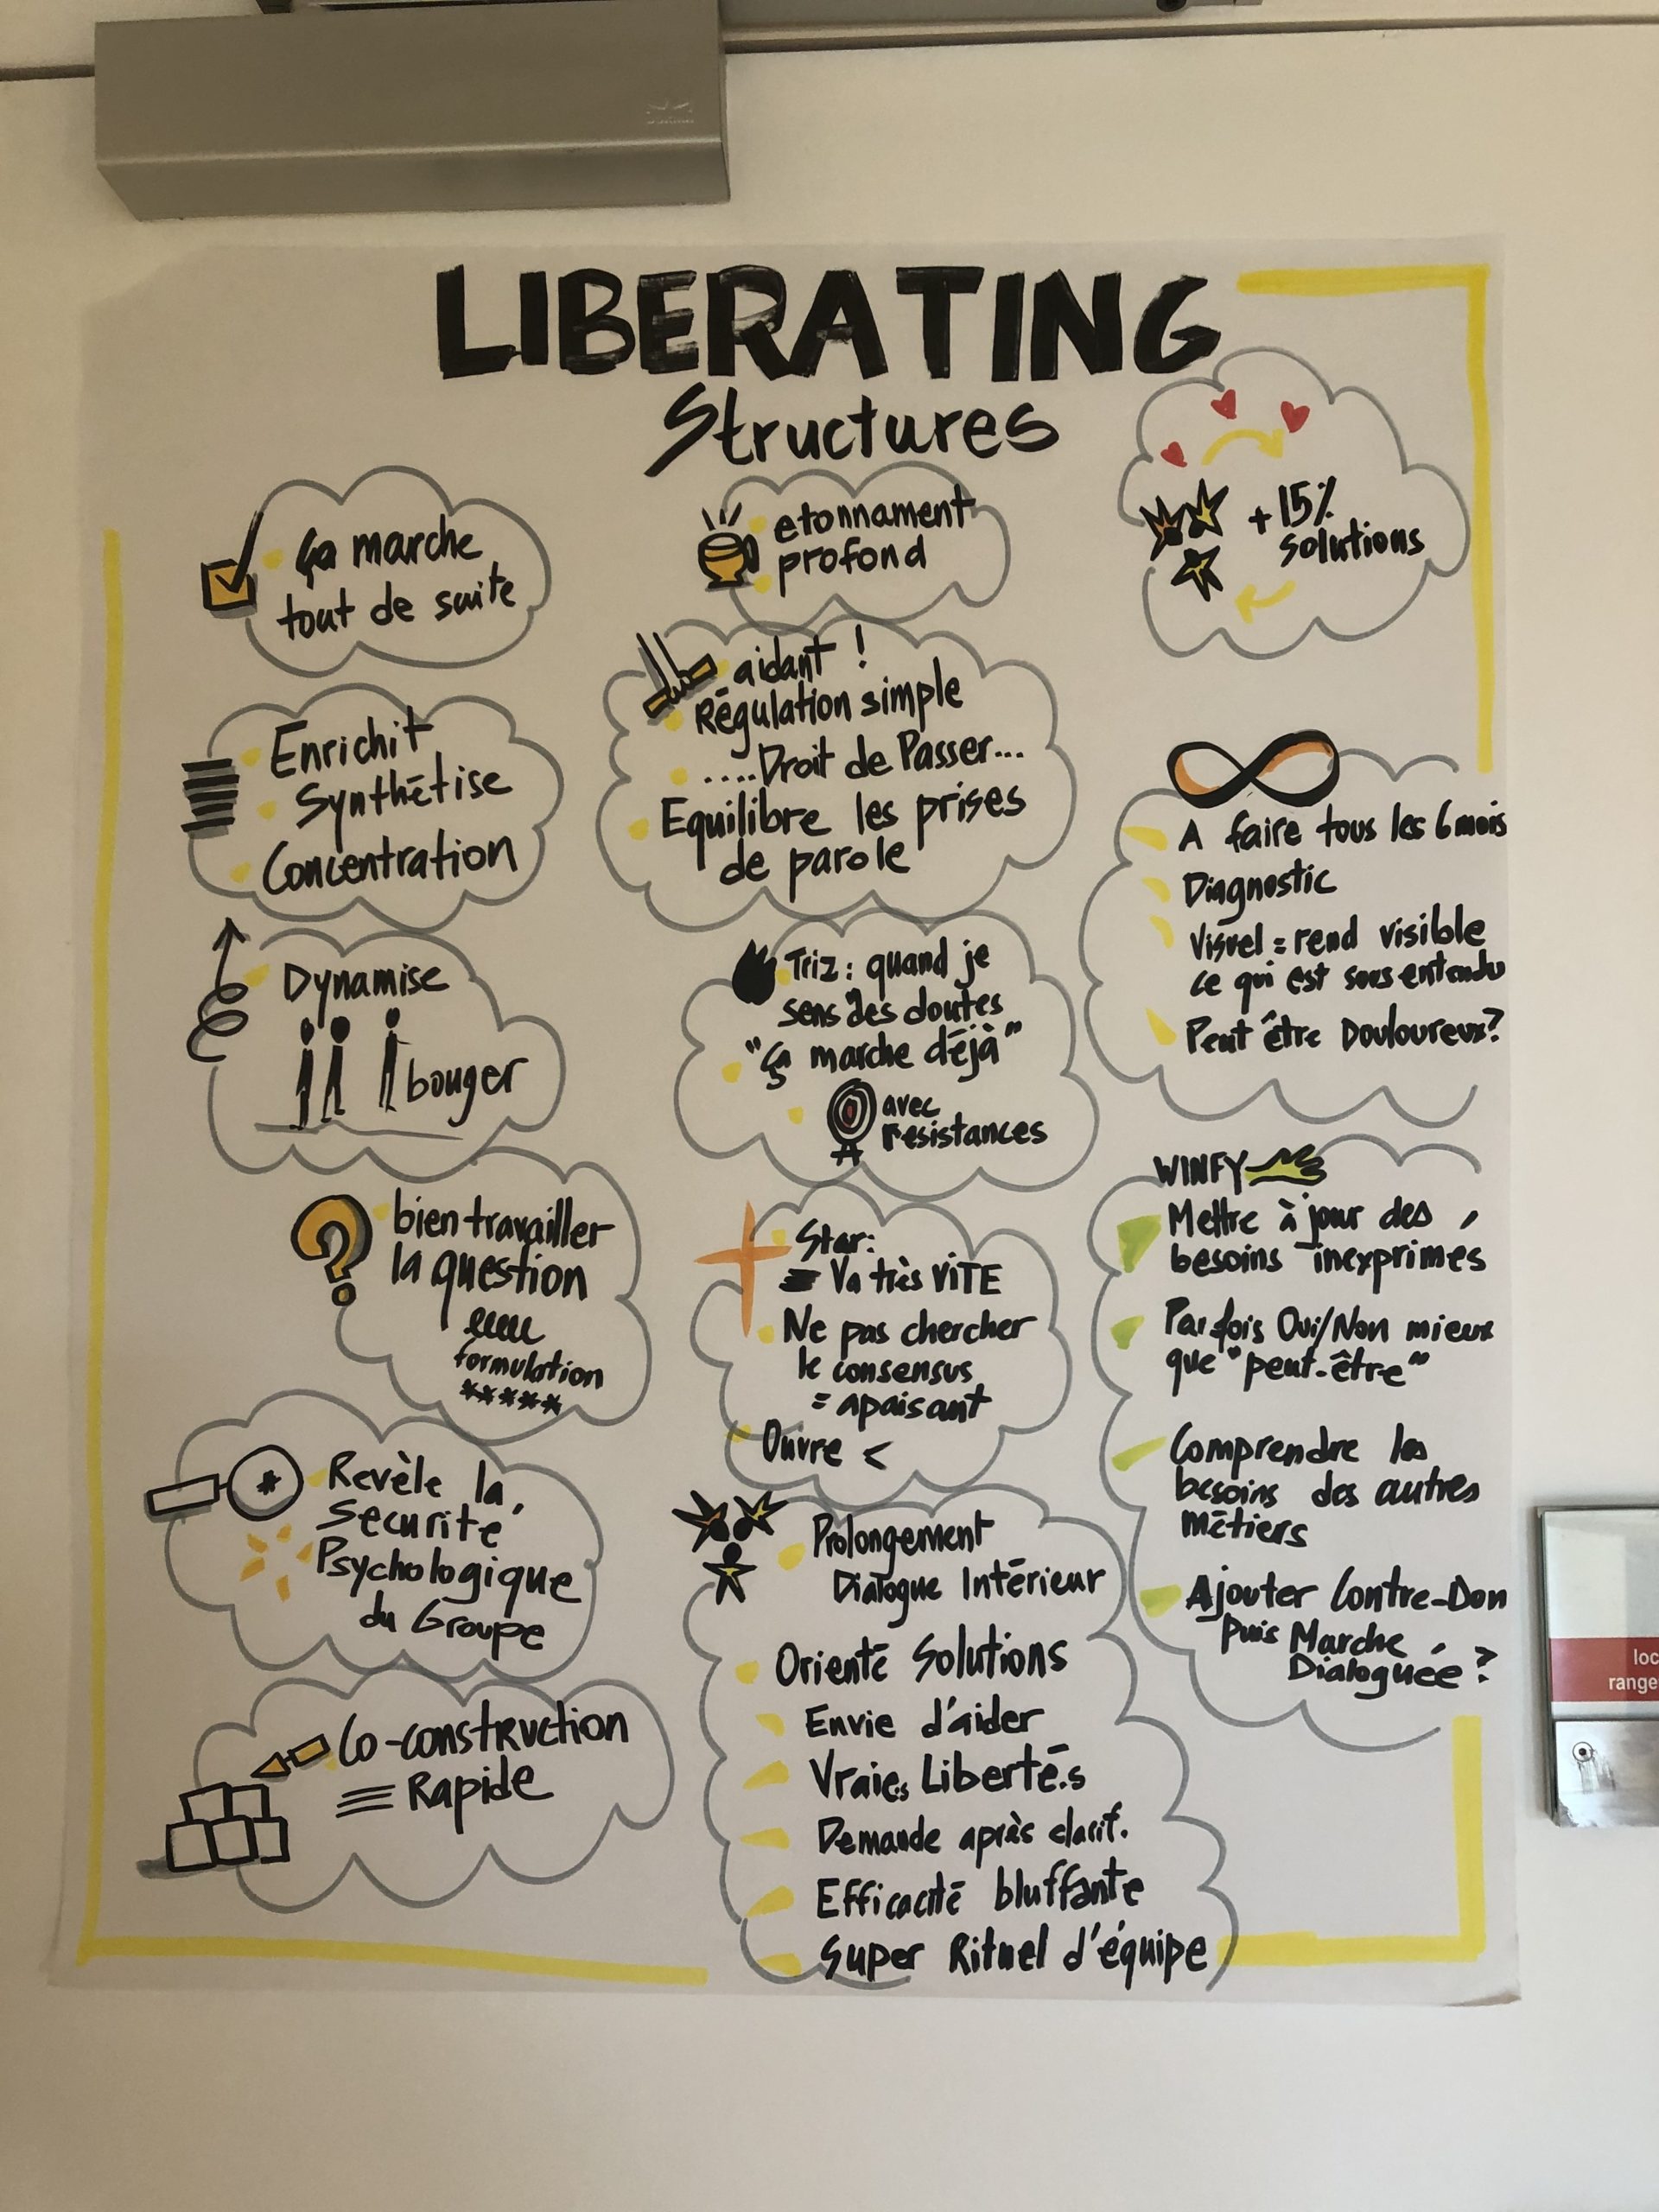 LIBERATING
Structures
ça marche
tout de suite
Enrichit
Synthétise
Concentration
Dynamise
bouger
bien travailler
la question
formulation
*****
Revèle la
securité
Psychologique
du Groupe
Co-construction
Rapide
etonnament
profond
aidant !
Régulation simple
....Droit de Passer...
Equilibre les prises
de parole
Triz : quand je
sens des doutes
"ça marche déjà"
avec
résistances
Star:
= Va très VITE
Ne pas chercher
le consensus
= apaisant
Ouvre <
Prolongement
Dialogue Intérieur
Orienté Solutions
Envie d'aider
Vraies Libertés
Demande après clarif.
Efficacité bluffante
Super Rituel d'équipe
+ 15%
solutions
A faire tous les 6 mois
Diagnostic
Visuel = rend visible
ce qui est sous entendu
Peut être Douloureux?
WINFY
Mettre à jour des
besoins inexprimés
Parfois Oui/Non mieux
que "peut-être"
Comprendre les
besoins des autres
métiers
Ajouter Contre-Don
Puis Marche
Dialoguée ?
loc
range